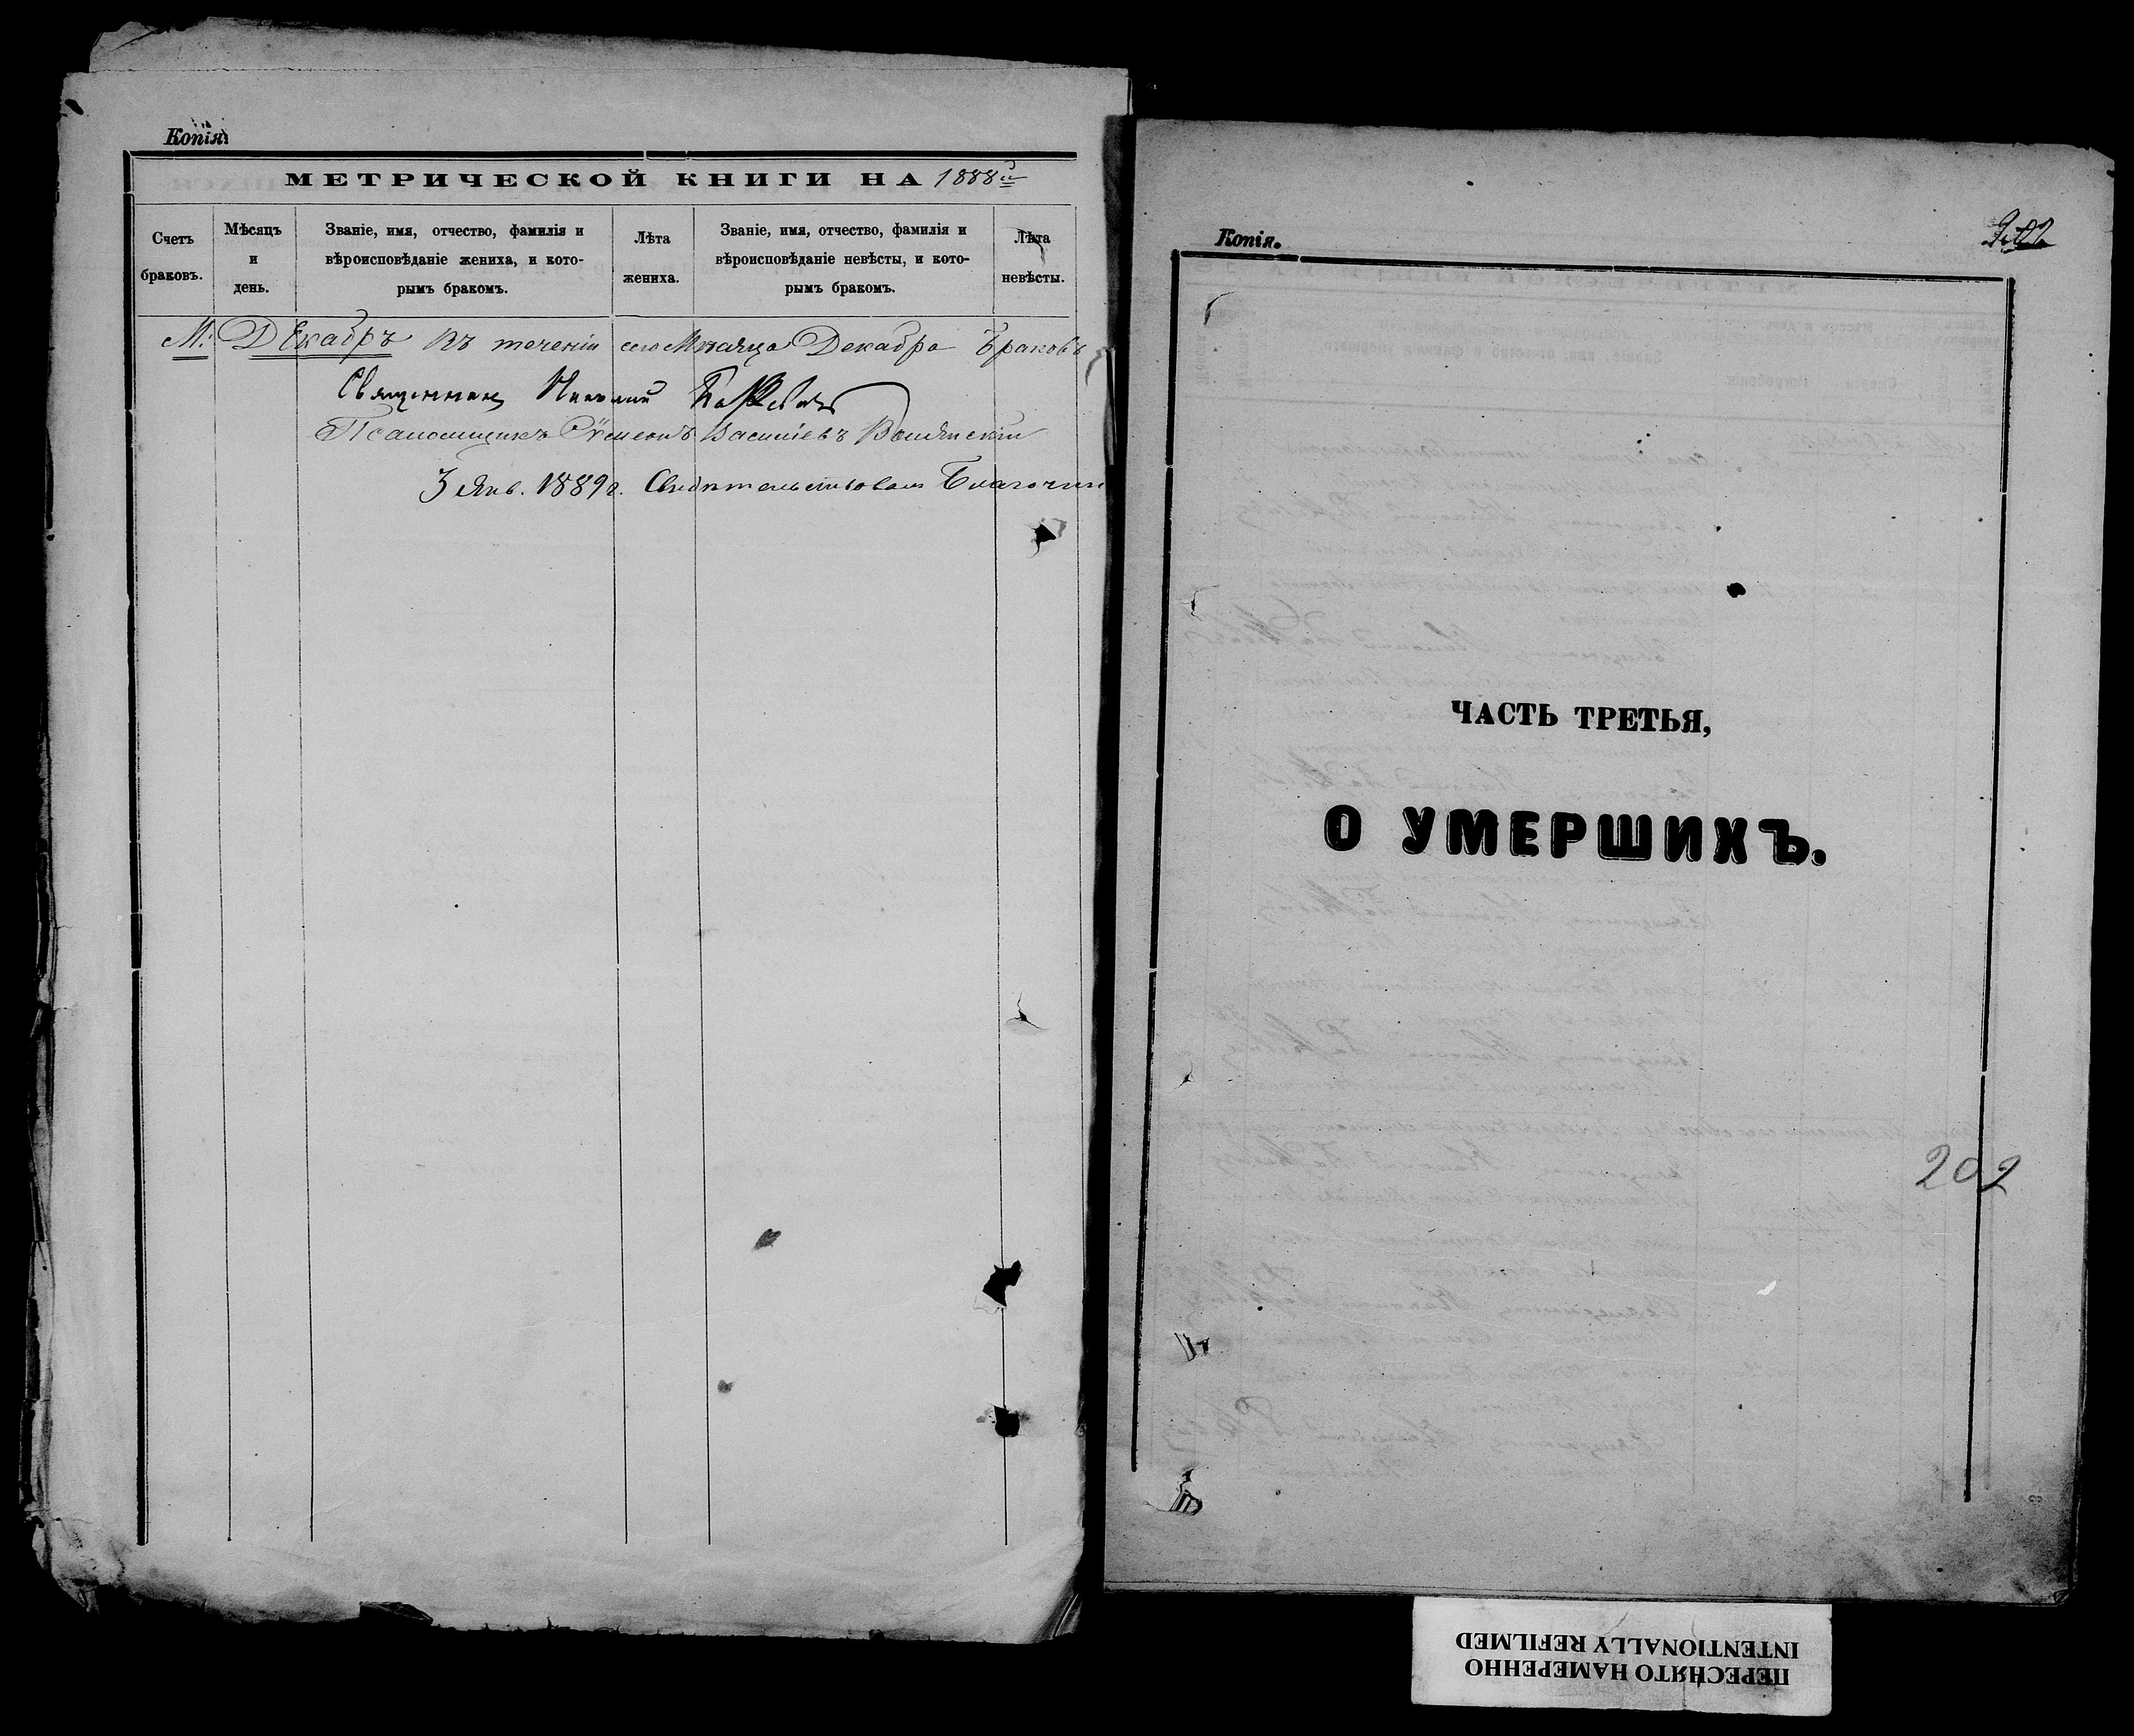 Копія.
МЕТРИЧЕСКОЙ КНИГИ НА 1888й
Счетъ браковъ.
Мѣсяцъ и день.
Званіе, имя, отчество, фамилія и вѣроисповѣданіе жениха, и которымъ бракомъ.
Лѣта жениха.
Званіе, имя, отчество, фамилія и вѣроисповѣданіе невѣсты, и которымъ бракомъ.
Лѣта невѣсты.
М: Декабрь Въ теченіи сего Мѣсяца Декабра Браковъ
Священникъ Николай
Псаломщикъ Сѵмеонъ Василіевъ
3 Янв. 1889 г. Свидѣтельствовалъ Благочин
Копія.
ЧАСТЬ ТРЕТЬЯ,
О УМЕРШИХЪ.
202
ПЕРЕСНЯТО НАМЕРЕННО
INTENTIONALLY REFILMED